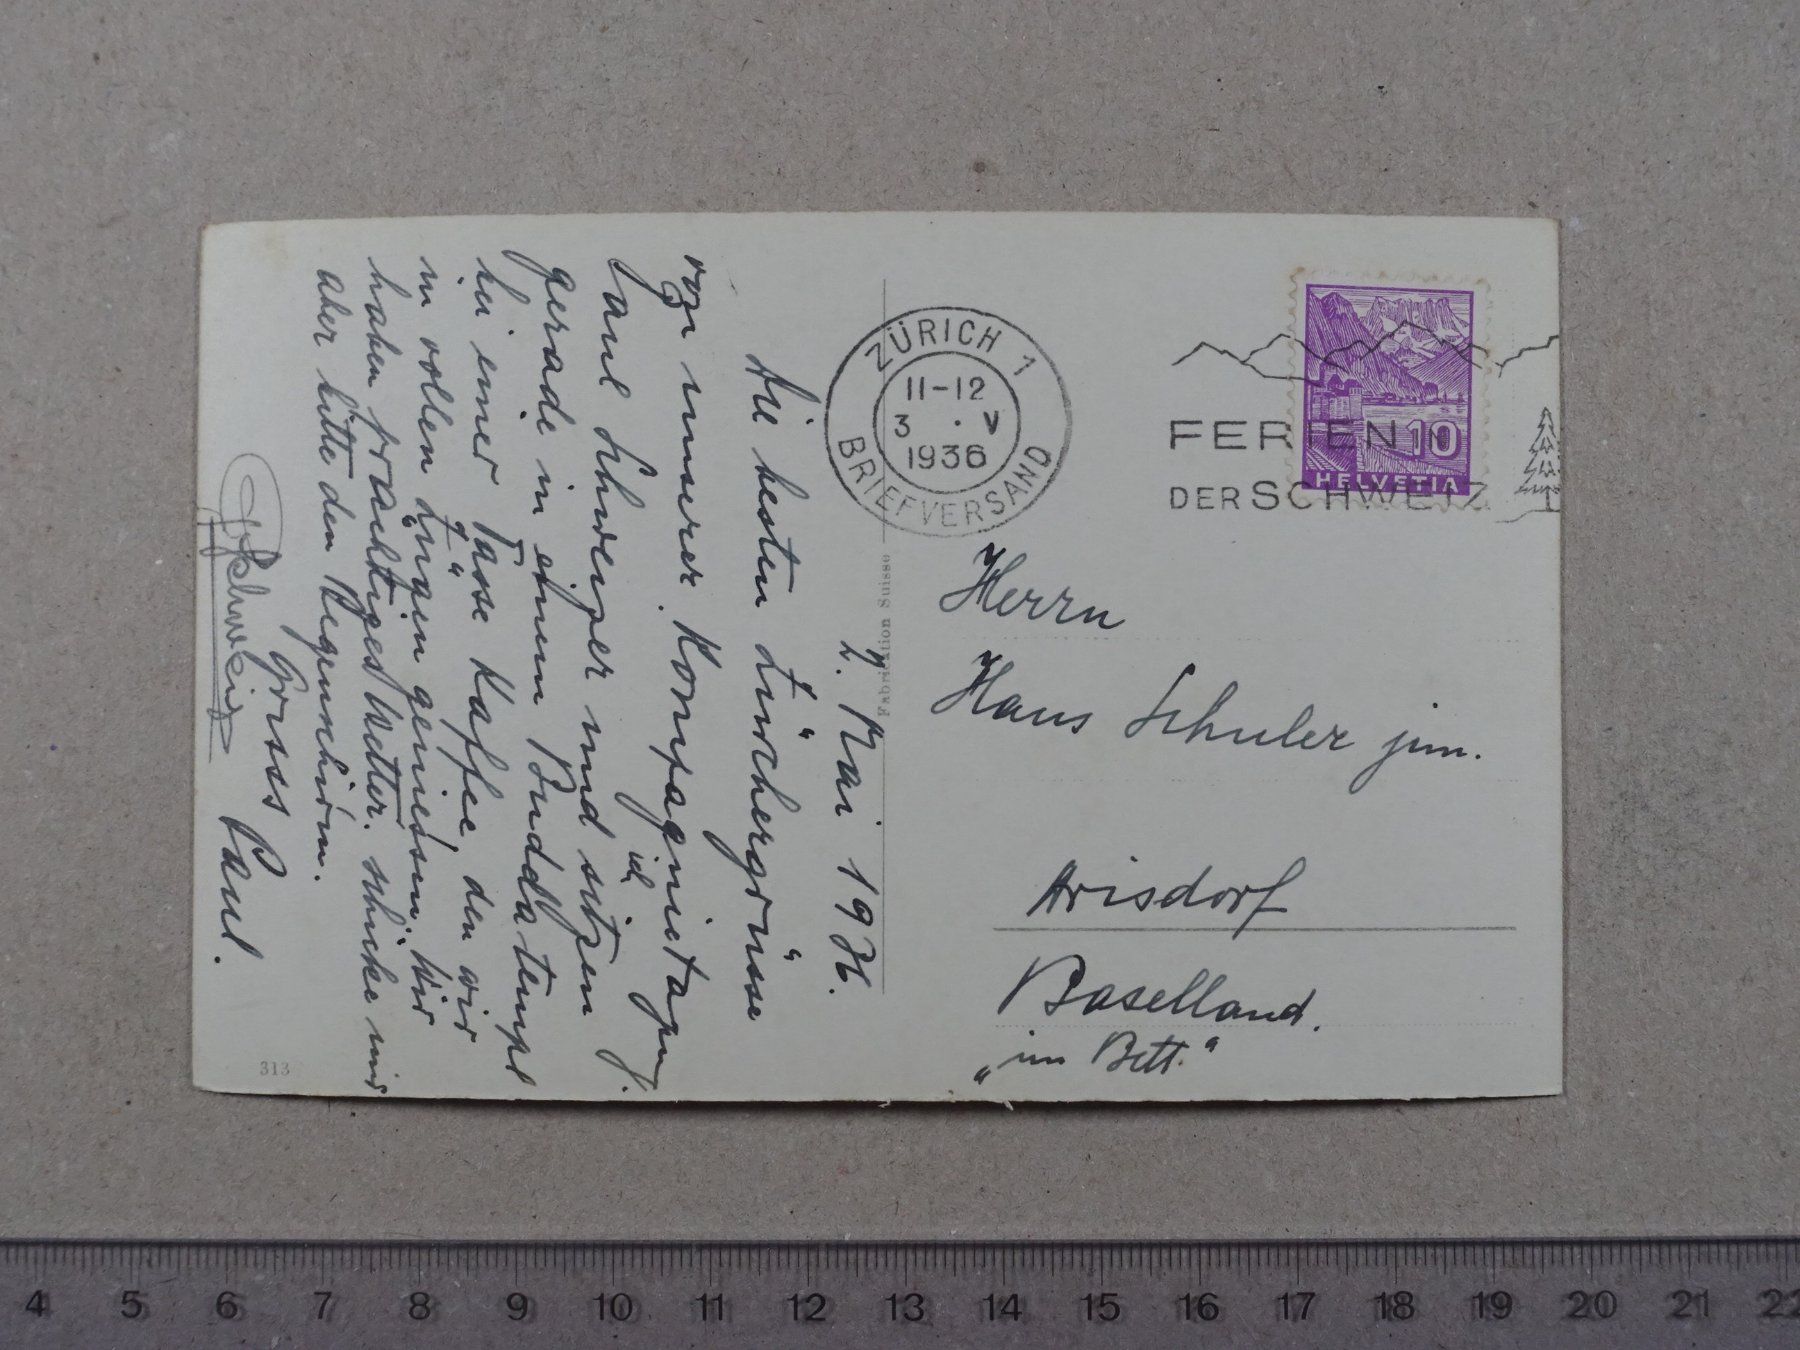 2. Mai 1936.
Die besten Zürchergrüsse
von unserer Kompagnietagung.
Paul Schweizer und ich sitzen
gerade in einem Buddhatempel
bei einer Tasse Kaffee, den wir
in vollen Zügen geniessen. Wir
haben prächtiges Wetter. Schicke mir
aber bitte den Regenschirm.
Gruss Paul.
PSchweizer
313
Fabrication Suisse
ZÜRICH 1
11-12
3 . V
1936
BRIEFVERSAND
FERIEN IN
DER SCHWEIZ
10
HELVETIA
Herrn
Hans Schuler jun.
Arisdorf
Baselland.
„im Bett."
4 5 6 7 8 9 10 11 12 13 14 15 16 17 18 19 20 21 22